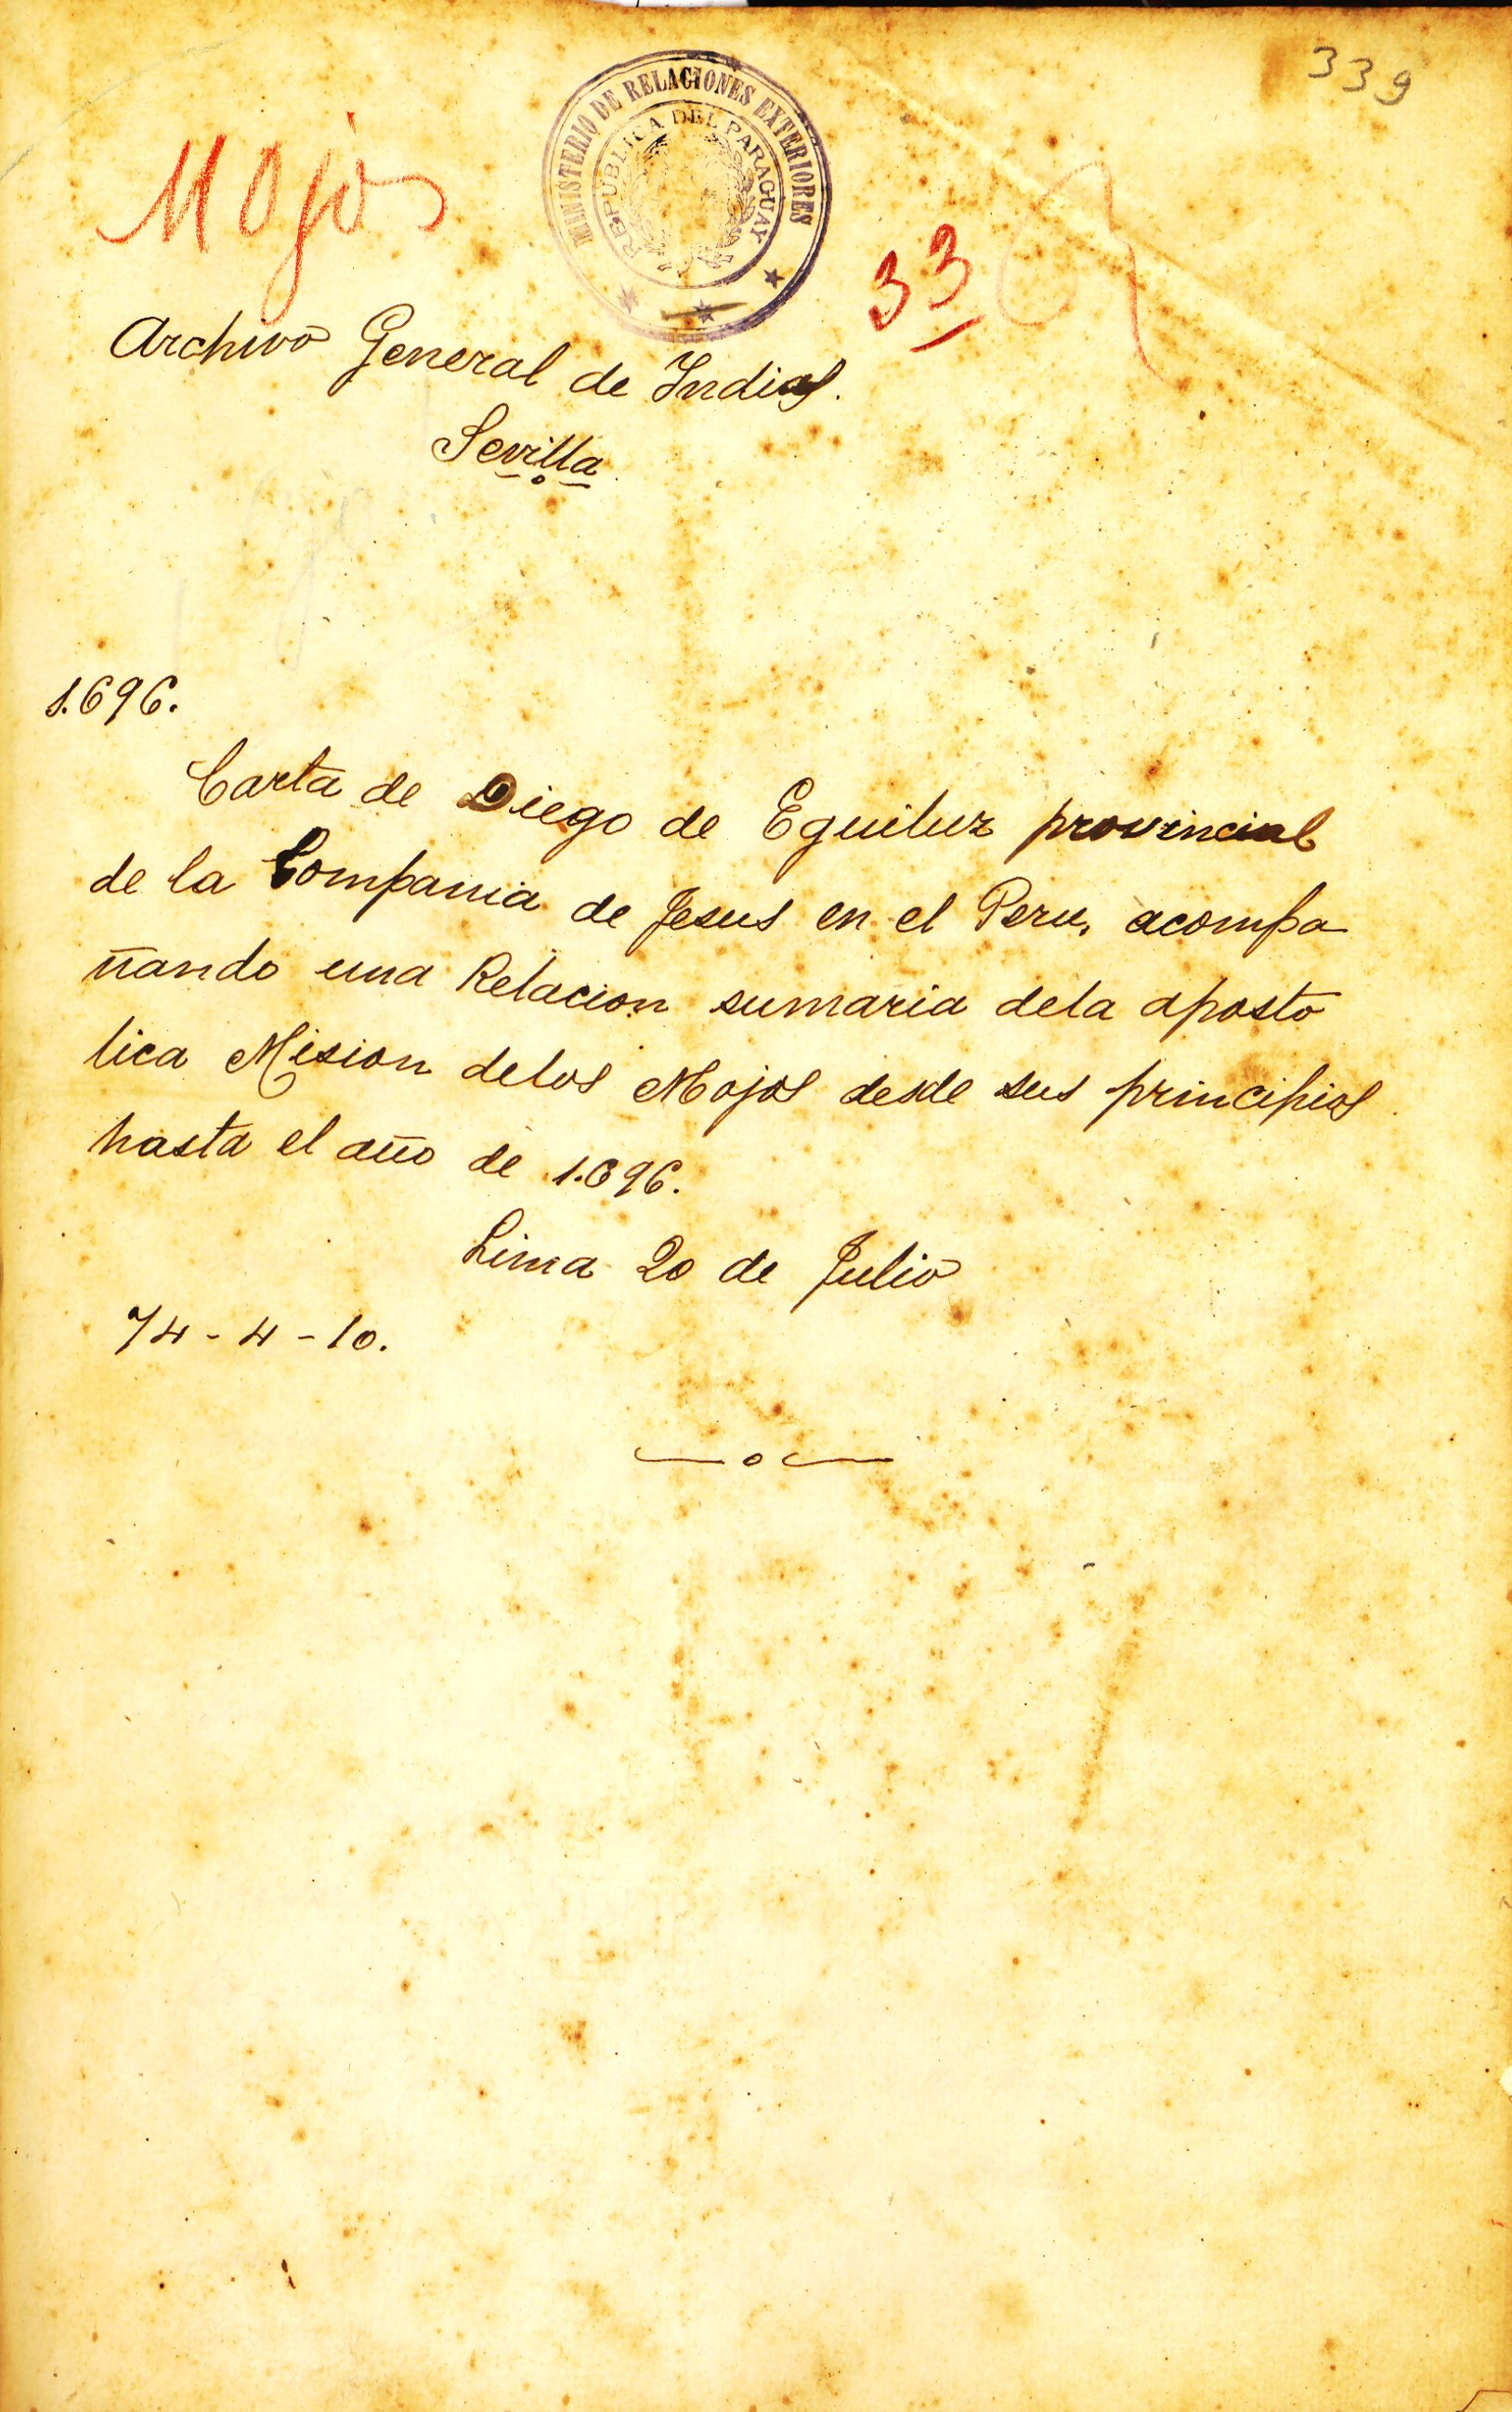 339
Mojos
MINISTERIO DE RELACIONES EXTERIORES
REPUBLICA DEL PARAGUAY
33
Archivo General de Indias.
Sevilla
1.696.
Carta de Diego de Eguiluz provincial
de la Compania de Jesus en el Peru, acompa
ñando una Relacion sumaria dela aposto
lica Mision delos Mojos desde sus principios
hasta el año de 1.696.
Lima 20 de Julio
74-4-10.